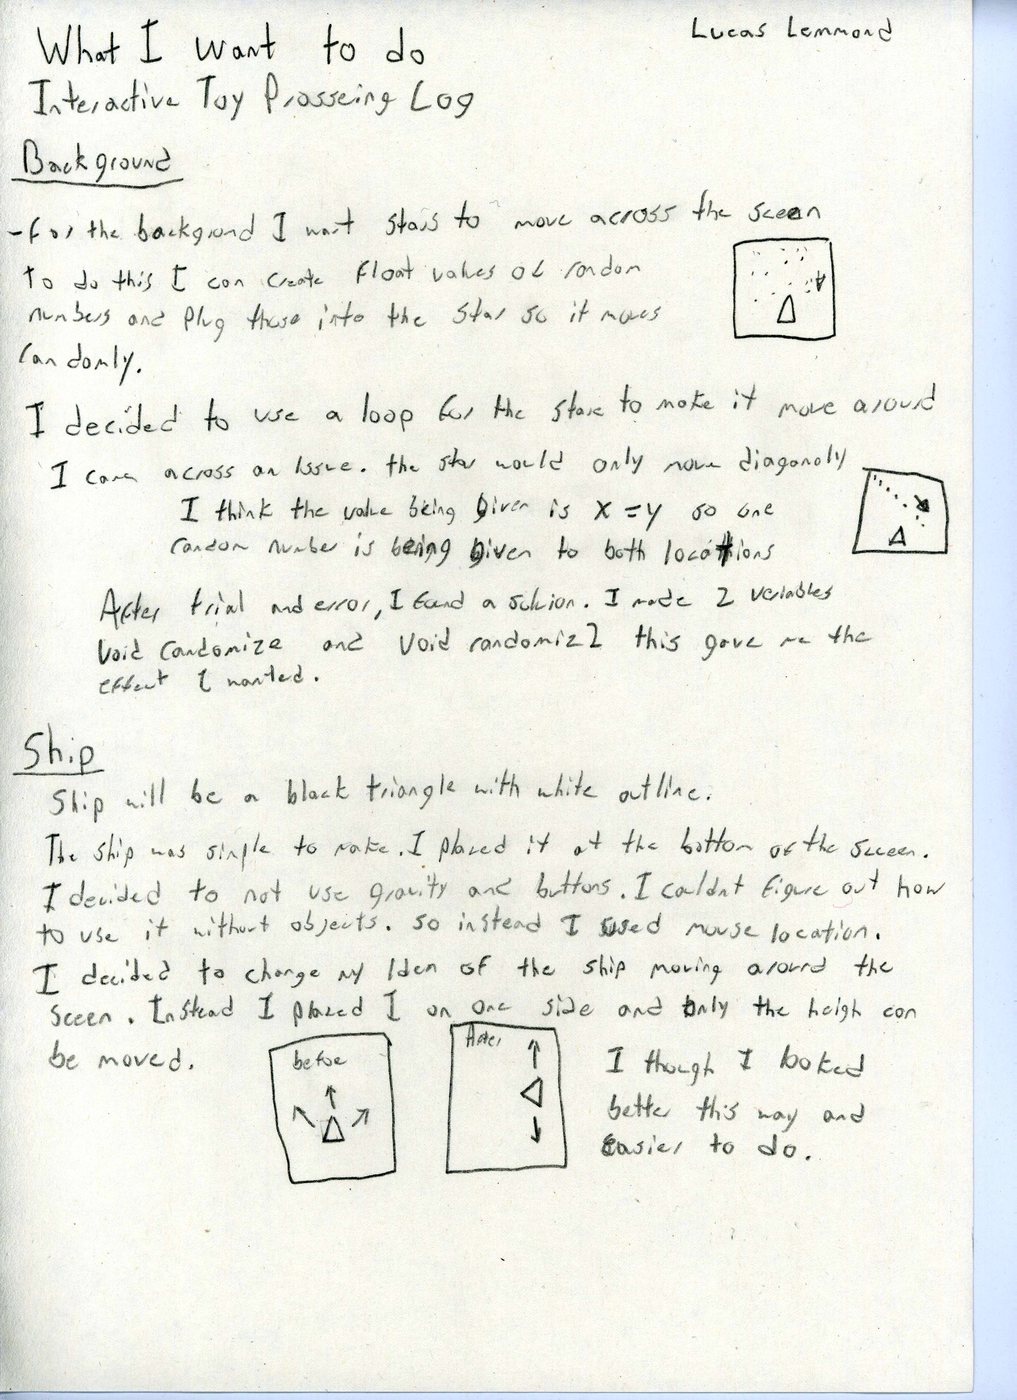 Lucas Lemmond
What I want to do
Interactive Toy Prosseing Log
Background
- For the backgrond I want stars to move across the sceen
to do this I can create float values of random
numbers and plug those into the star so it moves
randomly.
I decided to use a loop for the stare to make it move around
I came across an issue. the star would only move diagonaly
I think the value being given is x = y so one
random number is being given to both locations
After trial and error, I found a soluion. I made 2 variables
Void randomize and void randomiz2 this gave me the
effect I wanted.
Ship
Ship will be a black triangle with white outline.
The ship was simple to make. I placed it at the bottom of the sceen.
I decided to not use gravity and buttons. I couldnt figure out how
to use it without objects. so instead I used mouse location.
I decided to change my Iden of the ship moving around the
sceen. Instead I placed I on one side and only the heigh can
be moved.
before
After
I though I looked
better this way and
easier to do.